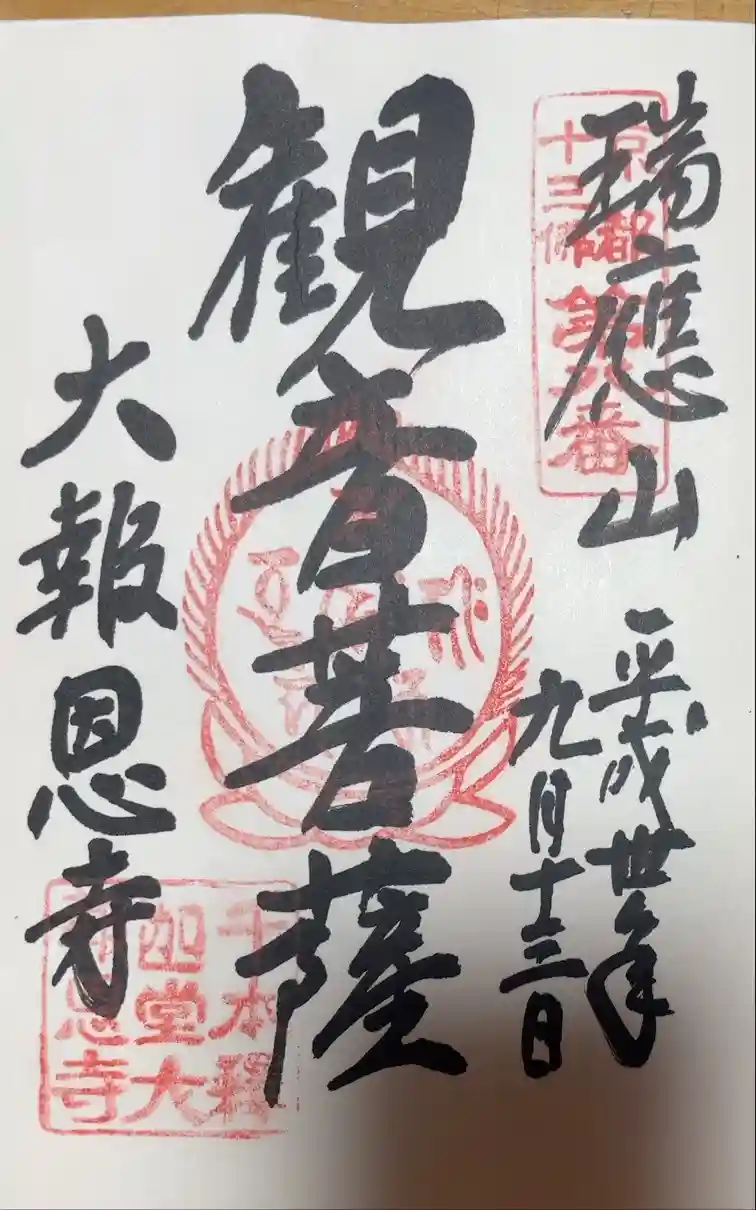 瑞應山
京都
十三佛
第八番
平成卅年
九月十三日
観音菩薩
大報恩寺
千本釋
迦堂大
報恩寺